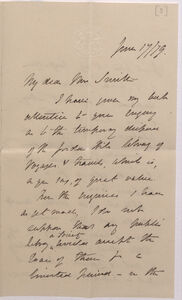 June 17/79.
My dear Mr
I have given my best
attention to your enquiry
as to the temporary deposit
of the
Voyages & Travels, which is,
as you say, of great value.
For the enquiries I have
as yet made, I do not
suppose that any public
library would accept the
loan of them for a
limited period — in the